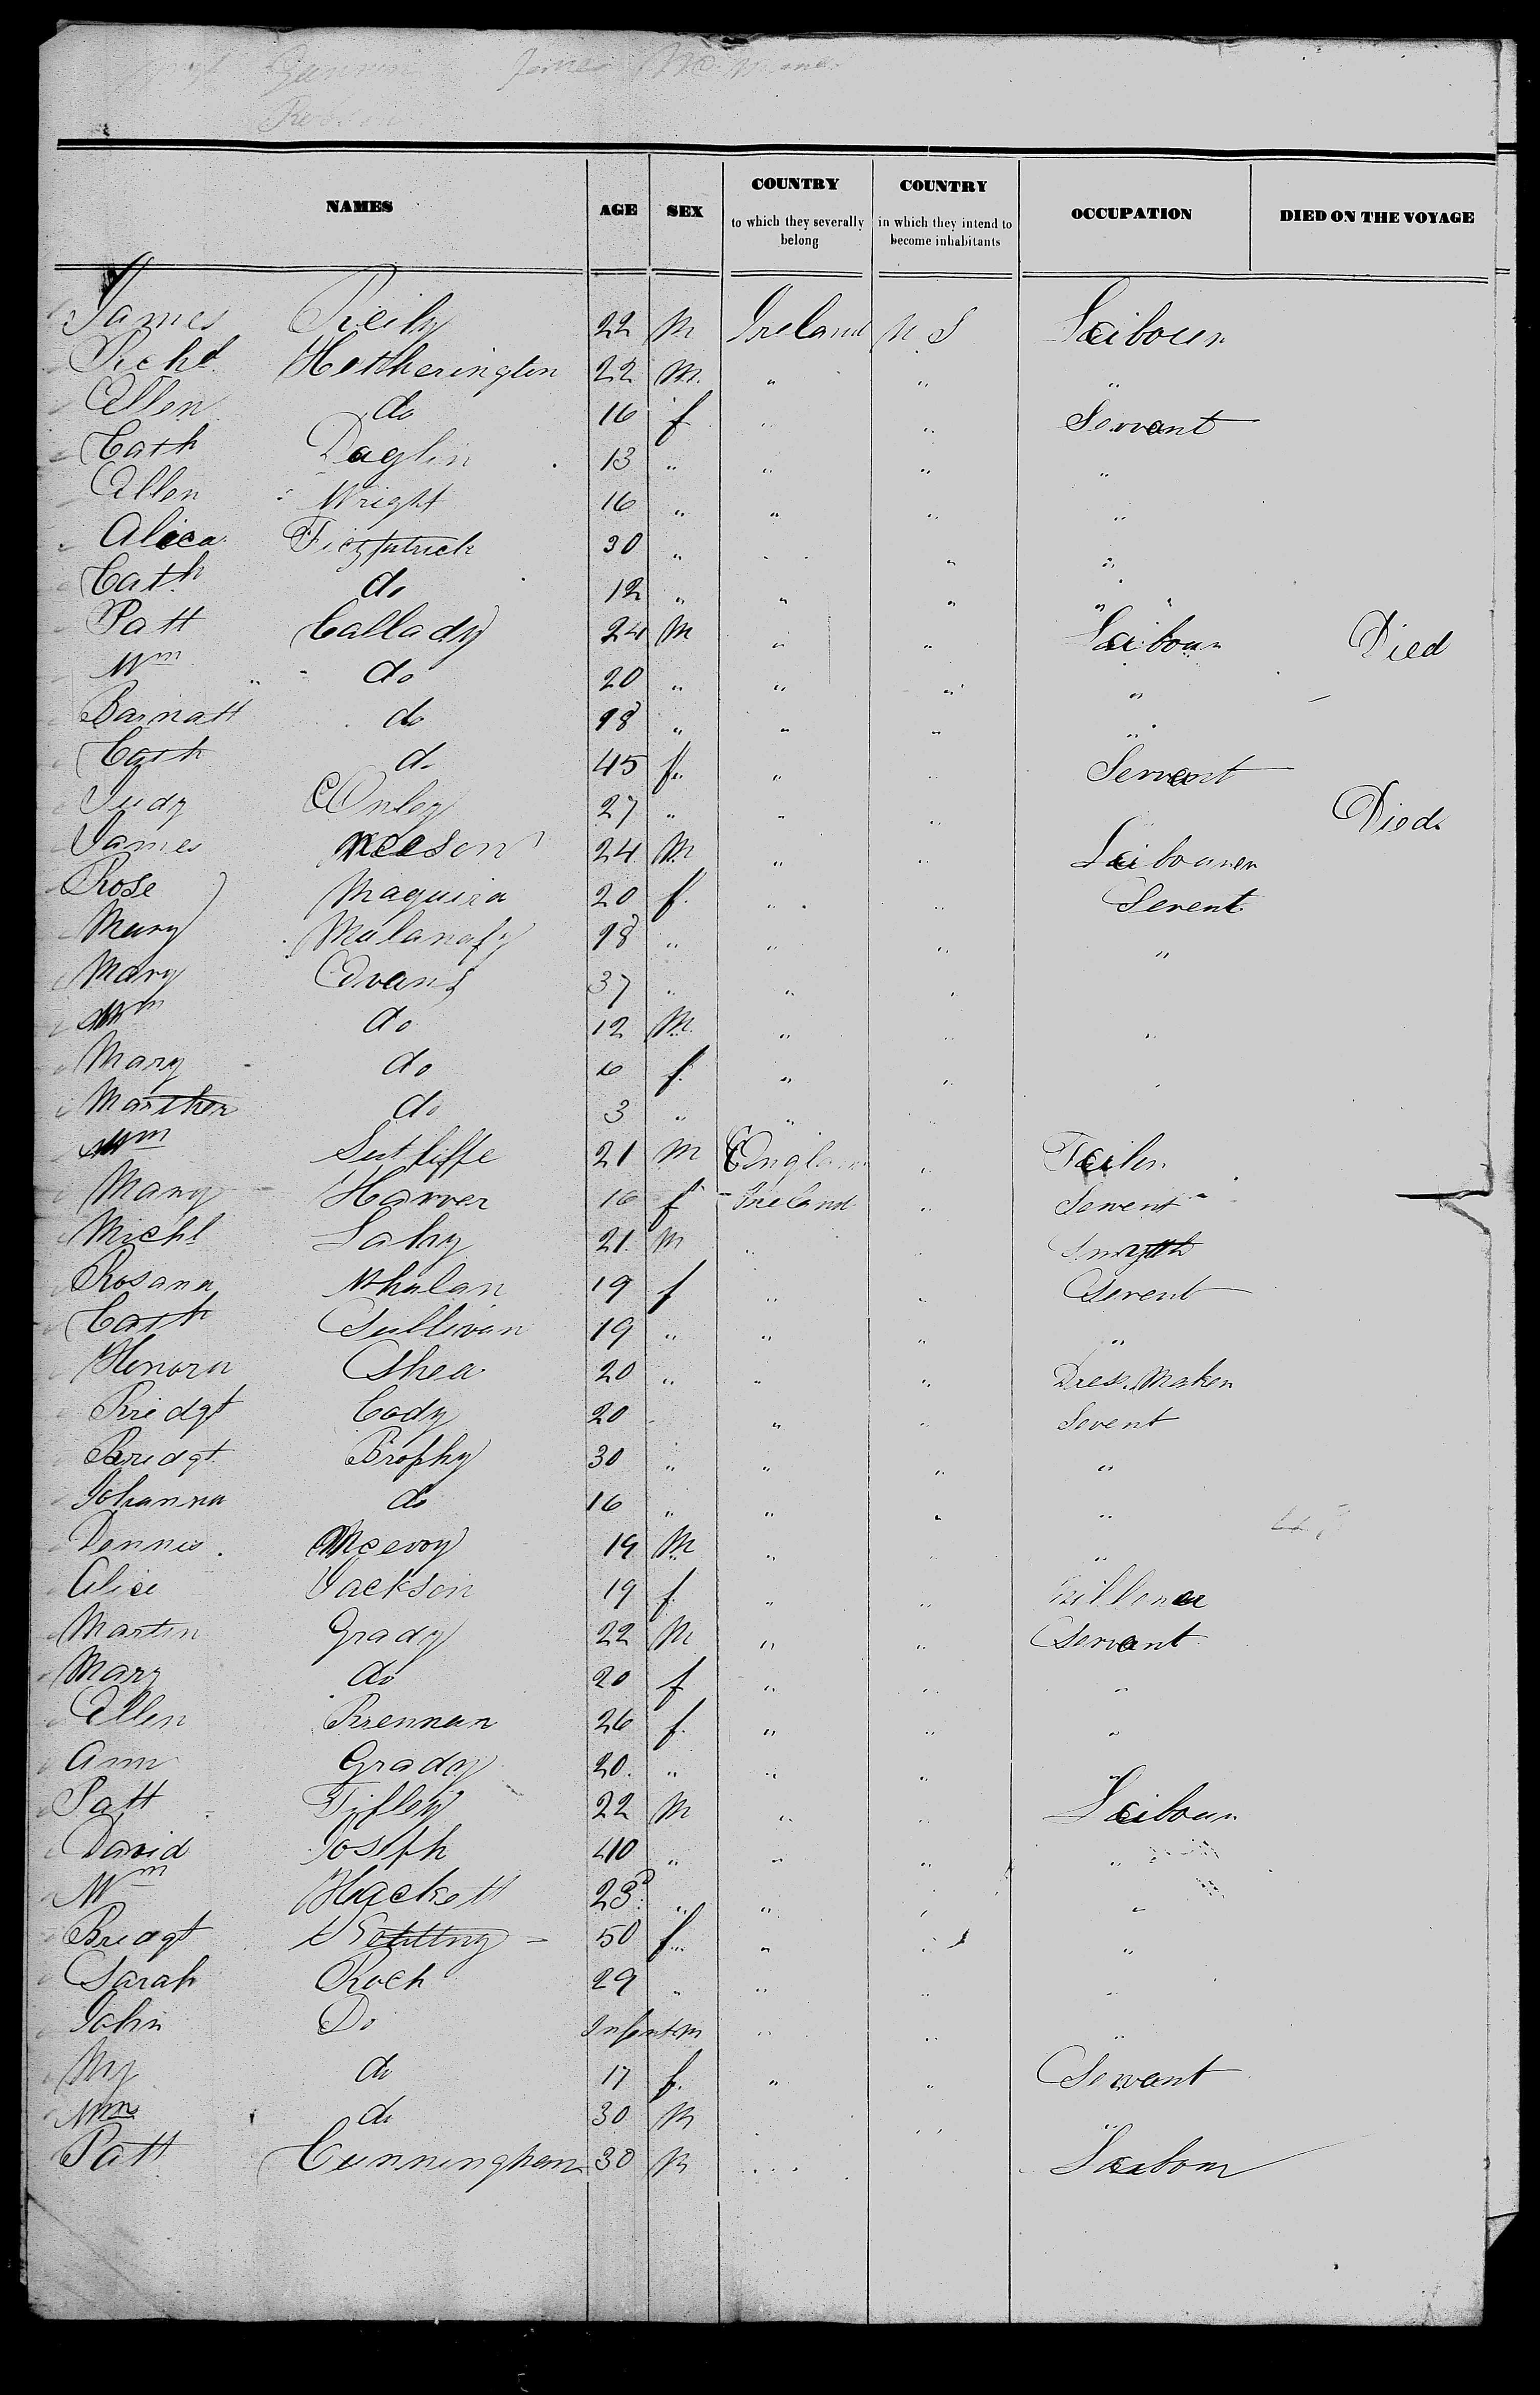 NAMES AGE SEX COUNTRY to which they severally belong COUNTRY in which they intend to become inhabitants OCCUPATION DIED ON THE VOYAGE
James Reily 22 M Ireland U S Laibour
Richd Hetherington 22 M " " "
Ellen do 16 f " " Servant
Cath Daglin 13 " " " "
Ellen Wright 16 " " " "
Alica 30 " " " "
Cath do 12 " " " "
Patt Callady 24 M " " Laibour Died
Wm do 20 " " " "
Barnatt do 18 " " " "
Cath do 45 f " " Servant
Judy Conley 27 " " " Died
James Neeson 24 M " " Laibourer
Rose Maguira 20 f " " Servent
Mary Mulanafy 18 " " " "
Mary Evans 37 " " "
Wm do 12 M " " "
Mary do 6 f " " "
Marther do 3 " " "
Wm Sutliffe 21 M England " Tailor
Mary Harver 16 f Ireland " Servent
Michl Lahy 21 M " " Smyth
Rosana Whalan 19 f " " Servent
Cath Sullivan 19 " " " "
Honora Shea 20 " " " Dress Maker
Bridgt Cody 20 " " Servent
Bridgt Brophy 30 " " " "
Johanna do 16 " " " "
Dennis Mcevoy 19 M " " "
Alice Jackson 19 f " "
Martin Grady 22 M " " Servant
Mary do 20 f " " "
Ellen Brennan 26 f " " "
Ann Grady 20 " " " "
Patt 22 M " " Laibour
David Joseph 40 " " " "
Wm Hackett 23 " " " "
Bridgt 50 f " " "
Sarah Roch 29 " " " "
John Do Infant m " " "
My do 17 f " " Servant
Wm do 30 M " "
Patt Cunningham 30 M " Laibour